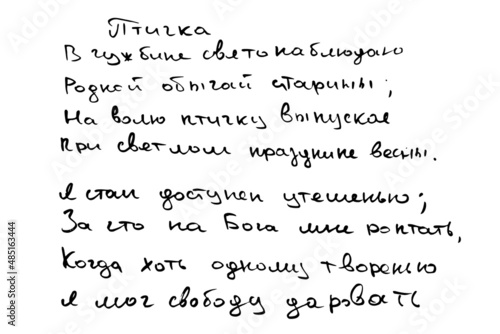 Птичка
В чужбине свято наблюдаю
Родной обычай старины;
На волю птичку выпускаю
При светлом празднике весны.
Я стал доступен утешенью;
За что на Бога мне роптать,
Когда хоть одному творенью
Я мог свободу даровать
Adobe Stock | #485163444